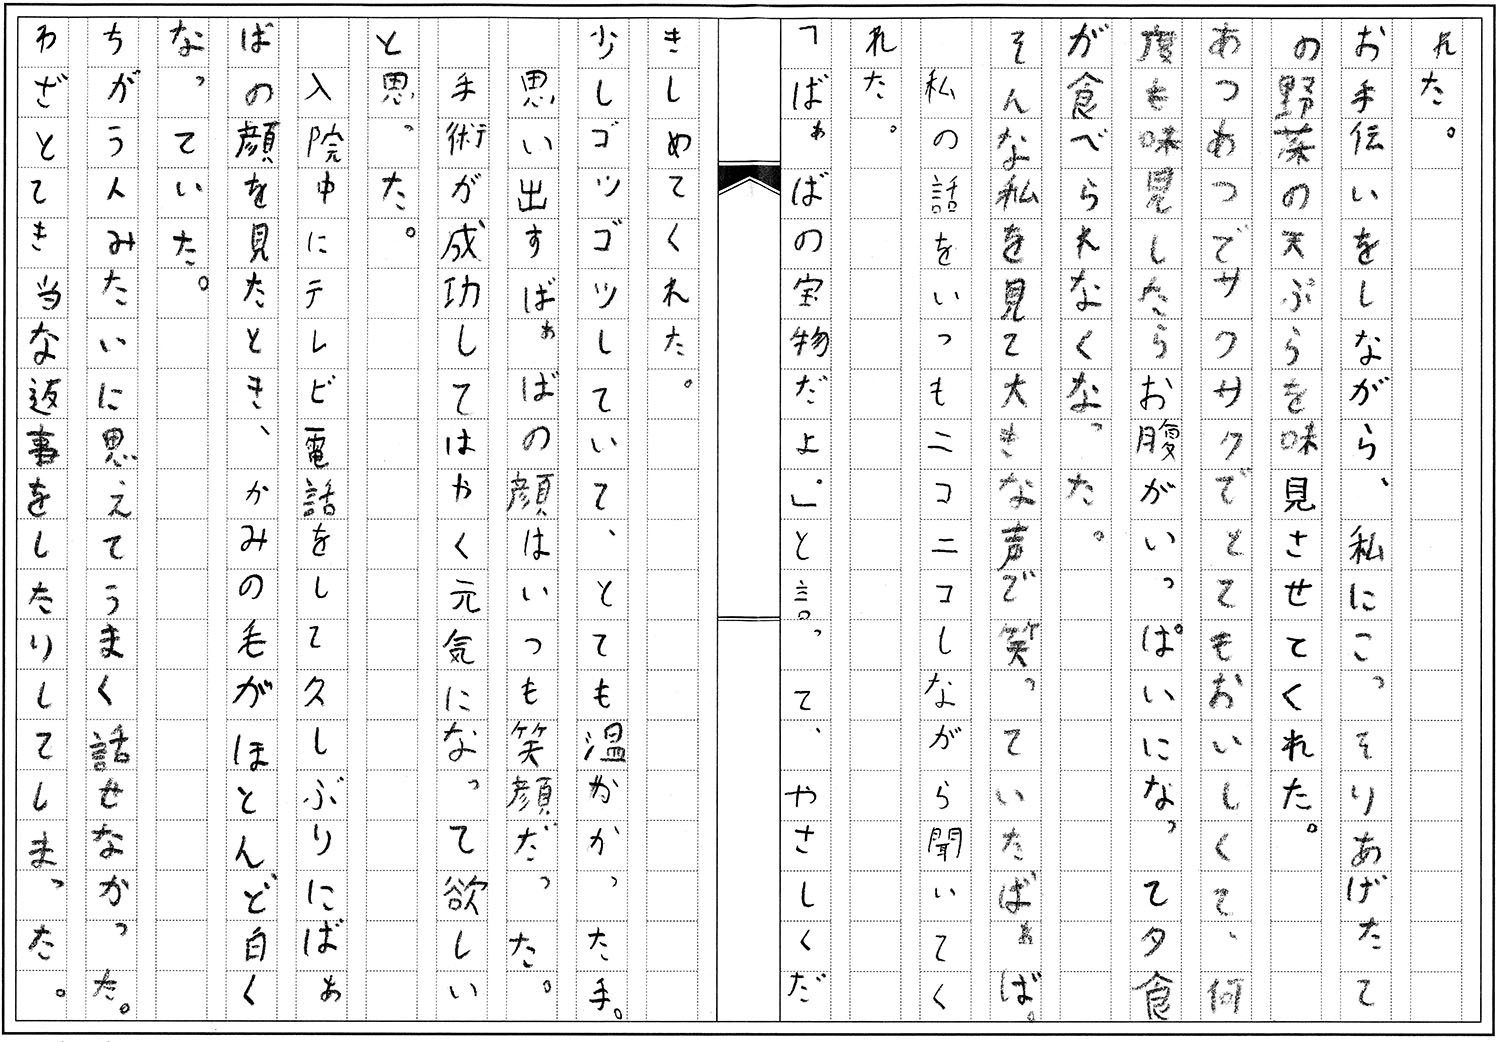 れた。
お手伝いをしながら、私にこっそりあげたて
の野菜の天ぷらを味見させてくれた。
あつあつでサクサクでとてもおいしくて、何
度も味見したらお腹がいっぱいになって夕食
が食べられなくなった。
そんな私を見て大きな声で笑っていたばぁば。
私の話をいつもニコニコしながら聞いてく
れた。
「ばぁばの宝物だよ。」と言って、やさしくだ
きしめてくれた。
少しゴツゴツしていて、とても温かかった手。
思い出すばぁばの顔はいつも笑顔だった。
手術が成功してはやく元気になって欲しい
と思った。
入院中にテレビ電話をして久しぶりにばぁ
ばの顔を見たとき、かみの毛がほとんど白く
なっていた。
ちがう人みたいに思えてうまく話せなかった。
わざとてき当な返事をしたりしてしまった。